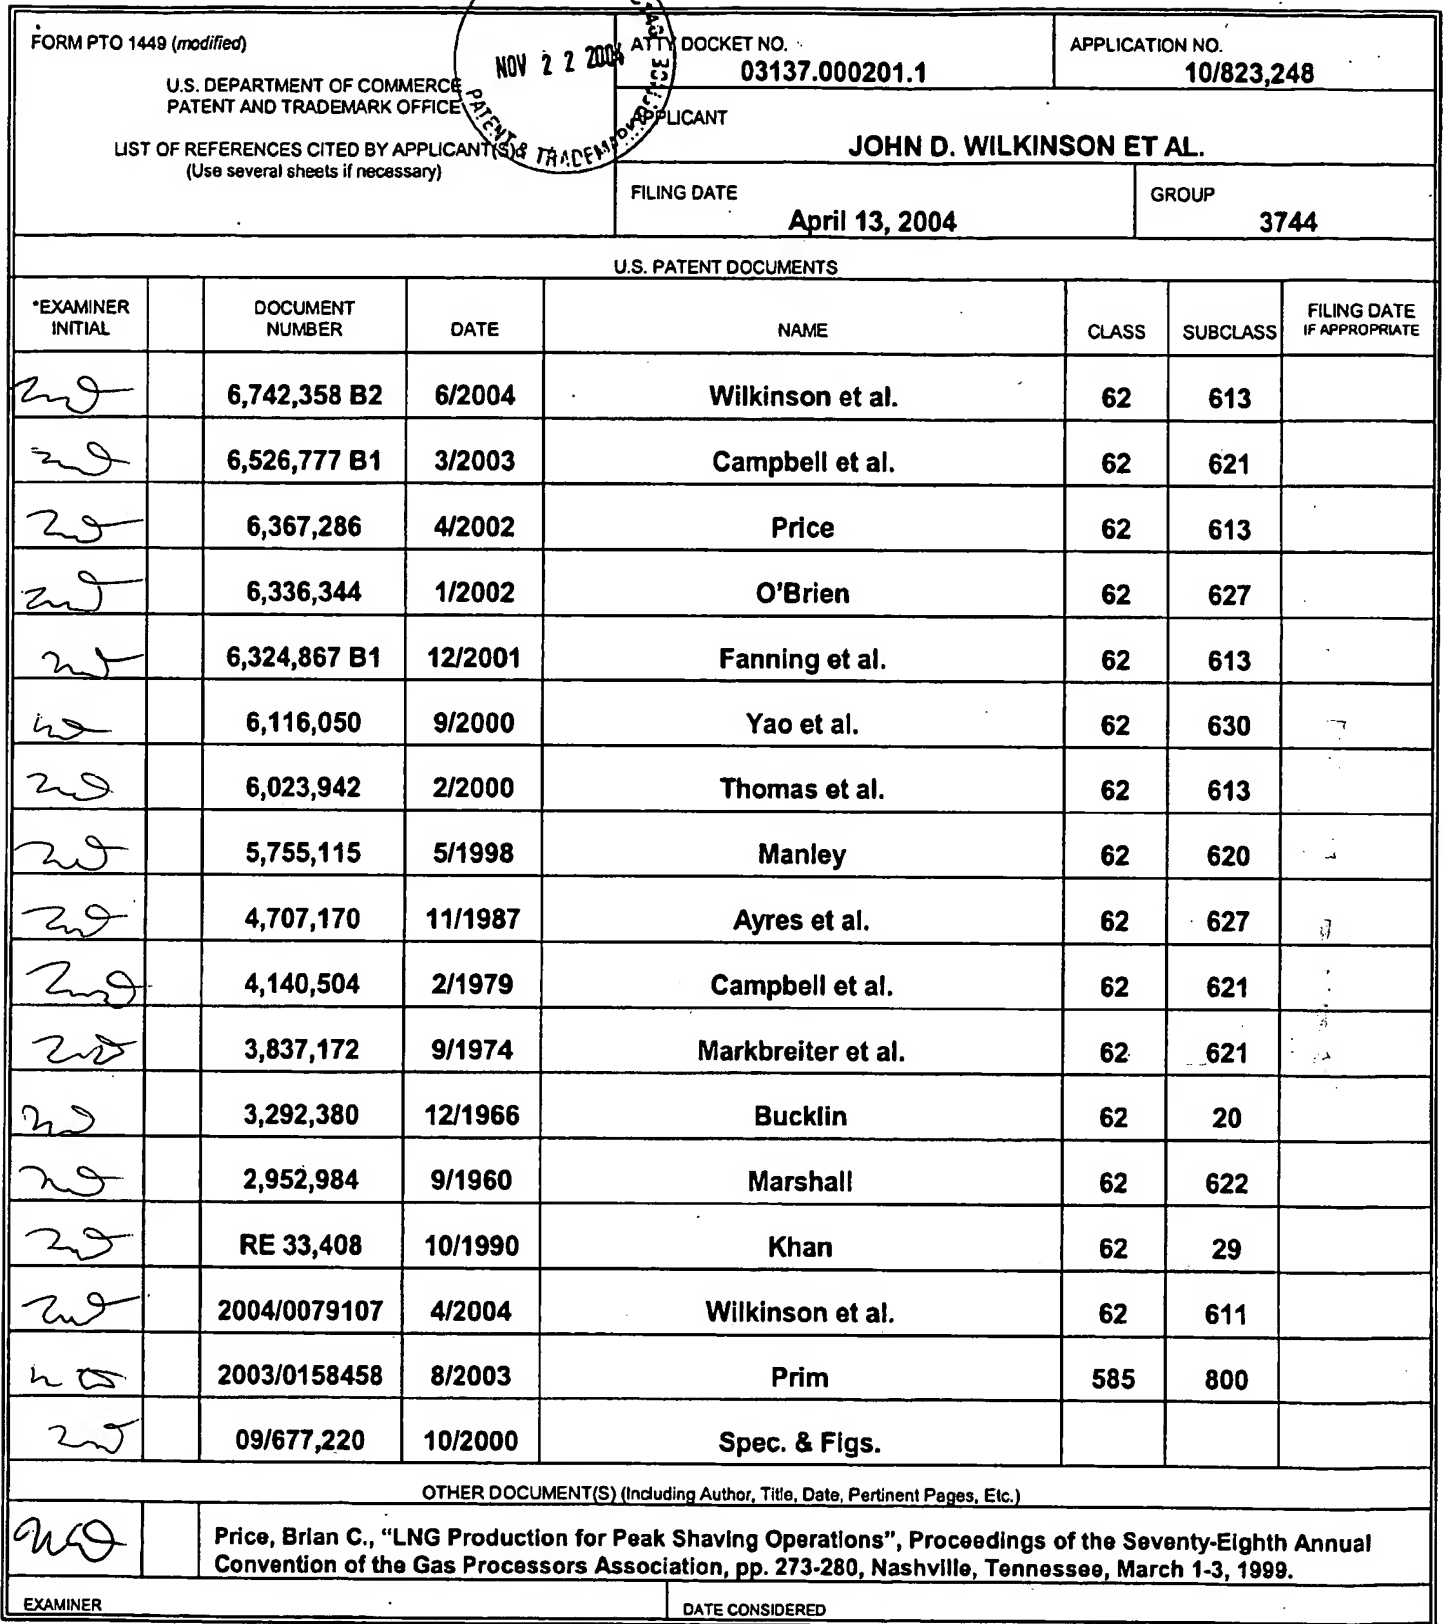 FORM PTO 1449 (modified)
U.S. DEPARTMENT OF COMMERCE
PATENT AND TRADEMARK OFFICE
LIST OF REFERENCES CITED BY APPLICANT(S)
(Use several sheets if necessary)
NOV 2 2 2004
PATENT & TRADEMARK
ATTY DOCKET NO.
03137.000201.1
APPLICATION NO.
10/823,248
APPLICANT
JOHN D. WILKINSON ET AL.
FILING DATE
April 13, 2004
GROUP
3744
U.S. PATENT DOCUMENTS
*EXAMINER INITIAL DOCUMENT NUMBER DATE NAME CLASS SUBCLASS FILING DATE IF APPROPRIATE
6,742,358 B2 6/2004 Wilkinson et al. 62 613
6,526,777 B1 3/2003 Campbell et al. 62 621
6,367,286 4/2002 Price 62 613
6,336,344 1/2002 O'Brien 62 627
6,324,867 B1 12/2001 Fanning et al. 62 613
6,116,050 9/2000 Yao et al. 62 630
6,023,942 2/2000 Thomas et al. 62 613
5,755,115 5/1998 Manley 62 620
4,707,170 11/1987 Ayres et al. 62 627
4,140,504 2/1979 Campbell et al. 62 621
3,837,172 9/1974 Markbreiter et al. 62 621
3,292,380 12/1966 Bucklin 62 20
2,952,984 9/1960 Marshall 62 622
RE 33,408 10/1990 Khan 62 29
2004/0079107 4/2004 Wilkinson et al. 62 611
2003/0158458 8/2003 Prim 585 800
09/677,220 10/2000 Spec. & Figs.
OTHER DOCUMENT(S) (Including Author, Title, Date, Pertinent Pages, Etc.)
Price, Brian C., "LNG Production for Peak Shaving Operations", Proceedings of the Seventy-Eighth Annual
Convention of the Gas Processors Association, pp. 273-280, Nashville, Tennessee, March 1-3, 1999.
EXAMINER
DATE CONSIDERED